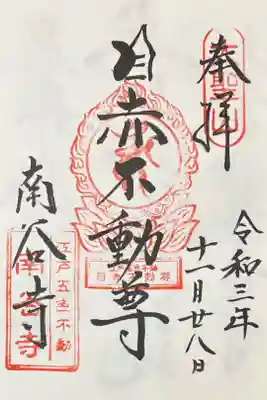 奉拝
令和三年
十一月廿八日
目赤不動尊
南谷寺
江戸五色不動
南谷寺